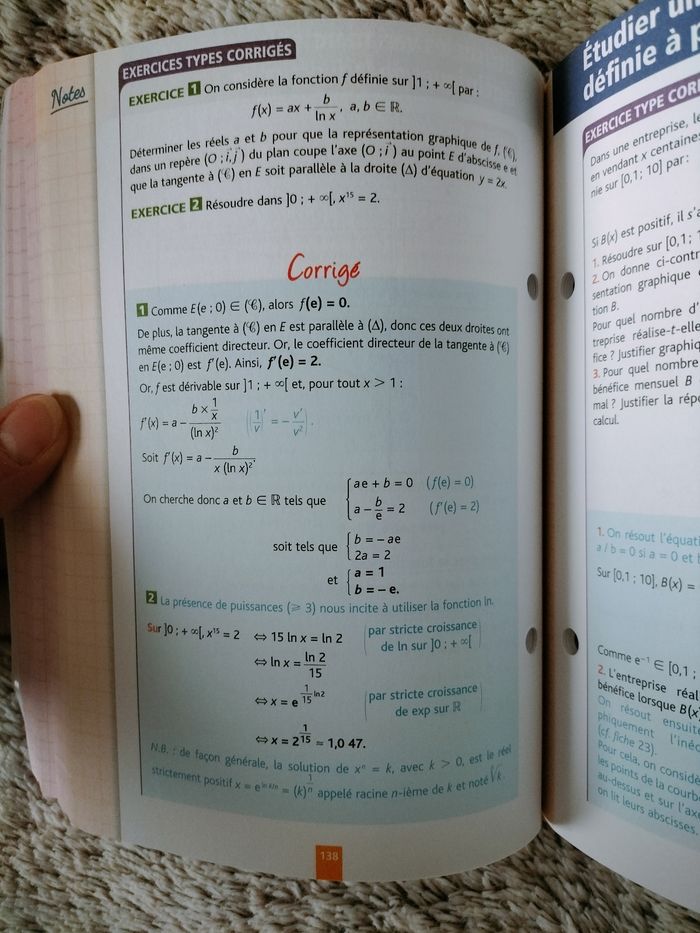 Notes
EXERCICES TYPES CORRIGÉS
EXERCICE 1 On considère la fonction f définie sur ]1 ; + ∞[ par :
f(x) = ax + b/ln x, a, b ∈ ℝ.
Déterminer les réels a et b pour que la représentation graphique de f, (𝒞),
dans un repère (O ; i⃗, j⃗) du plan coupe l'axe (O ; i⃗) au point E d'abscisse e et
que la tangente à (𝒞) en E soit parallèle à la droite (Δ) d'équation y = 2x.
EXERCICE 2 Résoudre dans ]0 ; + ∞[, x¹⁵ = 2.
Corrigé
1 Comme E(e ; 0) ∈ (𝒞), alors f(e) = 0.
De plus, la tangente à (𝒞) en E est parallèle à (Δ), donc ces deux droites ont
même coefficient directeur. Or, le coefficient directeur de la tangente à (𝒞)
en E(e ; 0) est f'(e). Ainsi, f'(e) = 2.
Or, f est dérivable sur ]1 ; + ∞[ et, pour tout x > 1 :
f'(x) = a – (b × 1/x)/(ln x)² ((1/v)' = – v'/v²).
Soit f'(x) = a – b/(x (ln x)²).
On cherche donc a et b ∈ ℝ tels que { ae + b = 0 (f(e) = 0)
a – b/e = 2 (f'(e) = 2)
soit tels que { b = – ae
2a = 2
et { a = 1
b = – e.
2 La présence de puissances (⩾ 3) nous incite à utiliser la fonction ln.
Sur ]0 ; + ∞[, x¹⁵ = 2 ⇔ 15 ln x = ln 2 (par stricte croissance
de ln sur ]0 ; + ∞[)
⇔ ln x = ln 2/15
⇔ x = e^(1/15 ln2) (par stricte croissance
de exp sur ℝ)
⇔ x = 2^(1/15) ≈ 1,0 47.
N.B. : de façon générale, la solution de xⁿ = k, avec k > 0, est le réel
strictement positif x = e^(ln k/n) = (k)^(1/n) appelé racine n-ième de k et noté ⁿ√k.
138
Étudier un
définie à p
EXERCICE TYPE COR
Dans une entreprise, le
en vendant x centaine
nie sur [0,1 ; 10] par :
Si B(x) est positif, il s'a
1. Résoudre sur [0,1 ; 1
2. On donne ci-contr
sentation graphique
tion B.
Pour quel nombre d'
treprise réalise-t-elle
fice ? Justifier graphiq
3. Pour quel nombre
bénéfice mensuel B
mal ? Justifier la rép
calcul.
1. On résout l'équati
a / b = 0 si a = 0 et
Sur [0,1 ; 10], B(x) =
Comme e⁻¹ ∈ [0,1 ;
2. L'entreprise réal
bénéfice lorsque B(x
On résout ensuite
phiquement l'inéc
(cf. fiche 23).
Pour cela, on considè
les points de la courb
au-dessus et sur l'axe
on lit leurs abscisses.